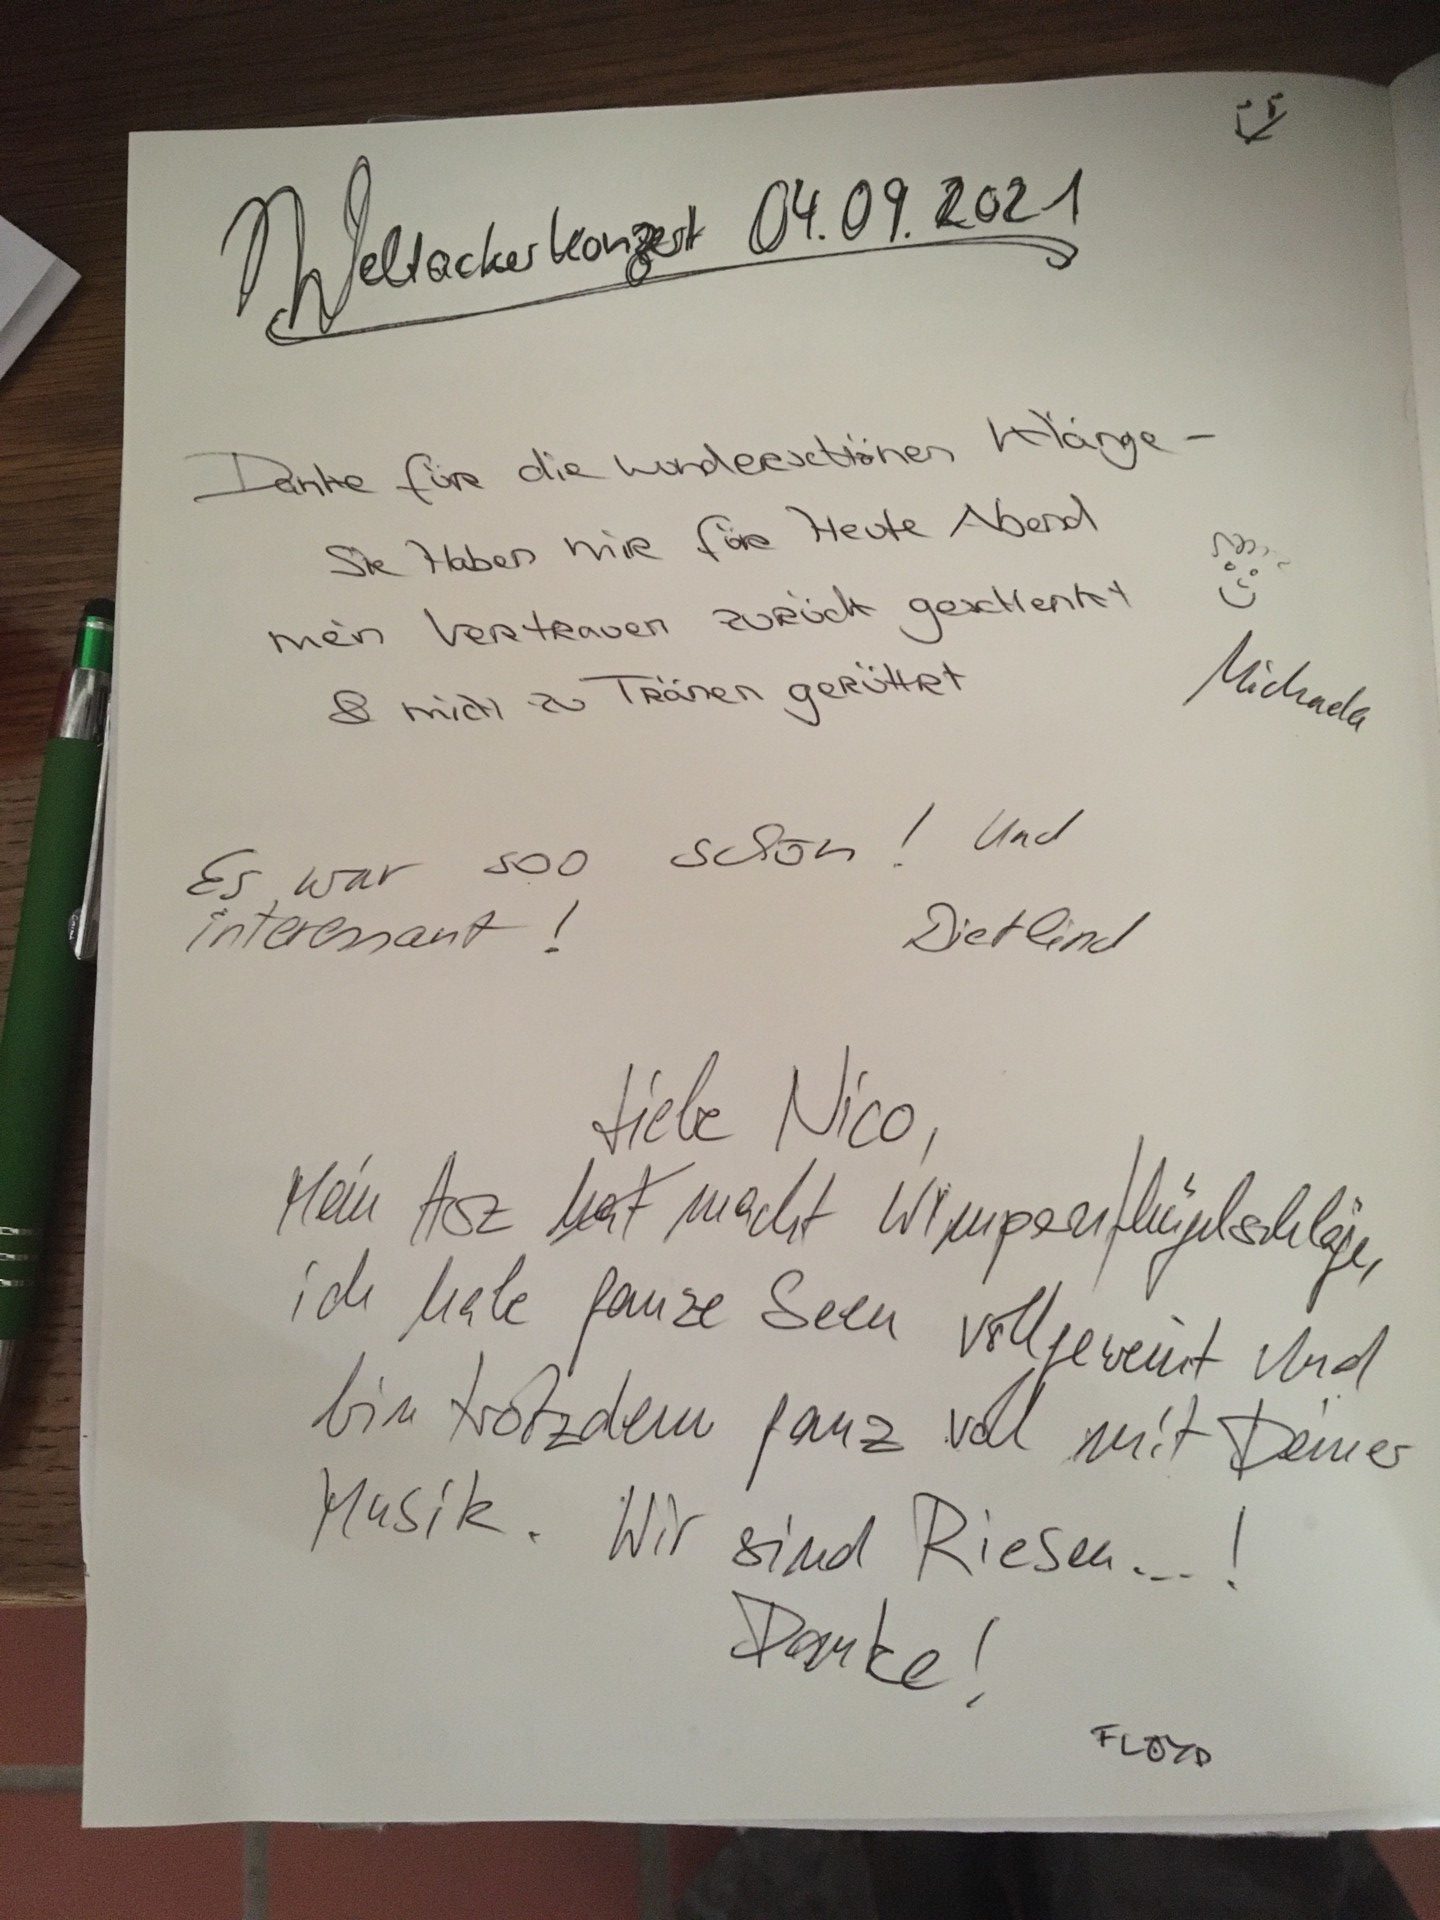 Weltackerkonzert 04.09.2021
Danke für die wunderschönen Klänge -
Sie Haben mir für Heute Abend
mein Vertrauen zurück geschenkt
& mich zu Tränen gerührt
Michaela
Es war soo schön! Und
interessant!
Dietlind
Liebe Nico,
Mein macht Wimpernflügelschläge,
ich habe ganze Seen vollgeweint und
bin trotzdem ganz voll mit Deiner
Musik. Wir sind Riesen...!
Danke!
FLOYD